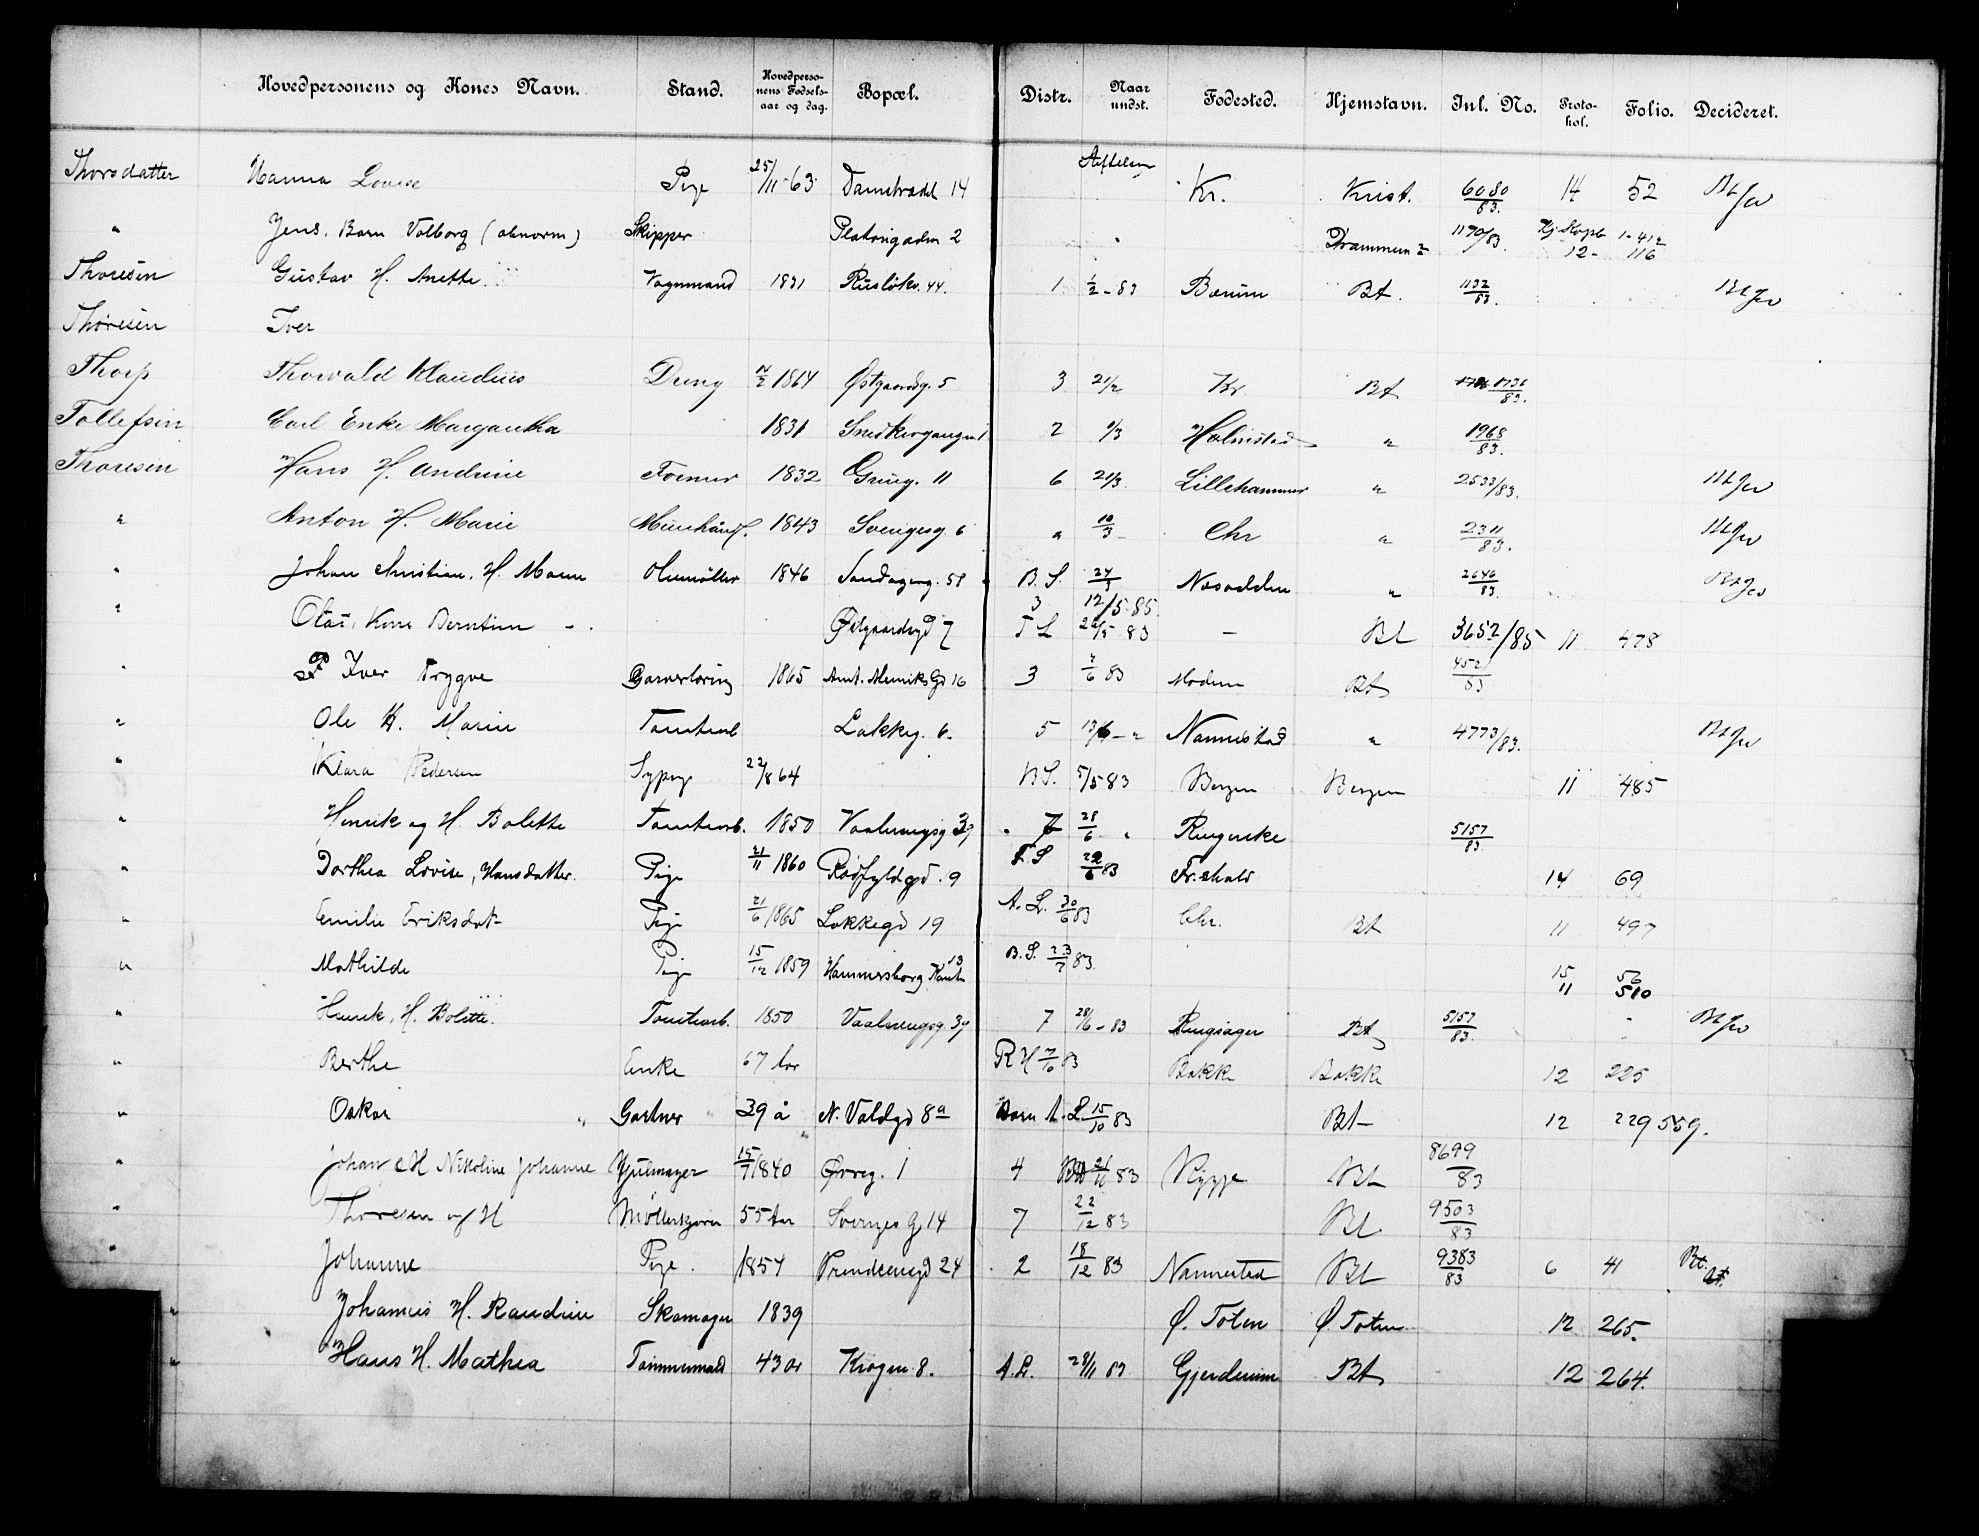 Hovedpersonens og Kones Navn. Stand. Hovedpersonens Fødselsaar og dag. Bopæl. Distr. Naar undst. Fødested. Hjemstavn. Inl. No. Protokol. Folio. Decideret.
Thorsdatter Hanna Lovise Pige 25/11 63 Damstrædet 14 Stiftelsen Kr. Krist. 6080/83. 14 52 Bt
" Jens, Barn Valborg (abnorm) Skipper 2 Drammen 1170/83. 12- 1-412 116
Thoresen Gustav H. Anette. Vognmand 1831 Ruseløkv. 44. 1 1/2-83 Bærum Bt. 1132/83. Bt
Thoresen Iver
Thorp Thorvald Klaudius Dreng 1864 Østgaardsg. 5 3 21/2 Kr. Bt 1736/83.
Tollefsen Carl Enke Margaretha 1831 2 9/3 Holmestad " 1968/83.
Thoresen Hans H. Andrine Former 1832 Grüng. 11 6 21/3. Lillehammer " 2533/83. Bt
" Anton H. Marie 1843 Sverigesg. 6 " 10/3 - Chr " 2311/83. Bt
" Johan Christian, H. Maren Oliemøller 1846 B. S. 24/3 Næsodden " 2646/83. Bt
" Olai, Kone Berntine - . Østgaardsgd 7 3 12/5 85. T L 22/5 83 - Bt 3652/85 11 478
" Iver Trygve Garverlæring 1865 Amt. Meiniks Gd 16 3 7/6 83 Modum Bt 452/83
" Ole H. Marie Tomtearb Lakkeg. 6. 5 13/6 - " Nannestad " 4773/83. Bt
" Klara Pedersen Sypige 22/8 64 B S. 5/5-83 Bergen Bergen 11 485
" Henrik og H. Bolette Tomtearb. 1850 Vaalerengsg 39 7 28/6 " 5157/83.
" Dorthea Lovise, Hansdatter. Pige 21/11 1860 Rødfyldgd. 9 F. S 22/6 83 Fr. Hald 14 69
" Emilie Eriksdat Pige 21/6 1865 Lakkegd 19 A. L. 30/6 83 Chr. Bt 11 497
" Mathilde Pige 15/12 1859 Hammersborg 13 B. S. 23/7 83. 15 11 56 510
" Henrik, H. Bolette. Tomtearb. 1850 Vaalerengsg. 39 7 28/6-83 Ringsager Bt 5157/83. Bt
" Berthe Enke 67 aar R H 7/6 83 Bakke Bakke 12 225
" Oskar " Gartner 39 å N. Voldgd 8a Barn A. L. 15/10 83 Bt- 12 229 559.
" Johan H Nikoline Johanne Hjulmager 15/7 1840 Øvreg. 1 4 21/11 83 Rygge Bt 8699/83
" Thoresen og H 55 aar Sverges g 14 7 22/12 83 Bt 9503/83
" Johanne Pige. 1857 Prindsensgd 24 2 18/12 83 Nannestad Bt 9383/83 6 41 Bt.
" Johannes H. Randine Skomager 1839 Ø. Toten Ø. Toten 12 265.
" Hans H. Mathea Tømmermand 43 år Krogen 8. A. L. 28/11 83 Gjerdrum Bt 12 264.